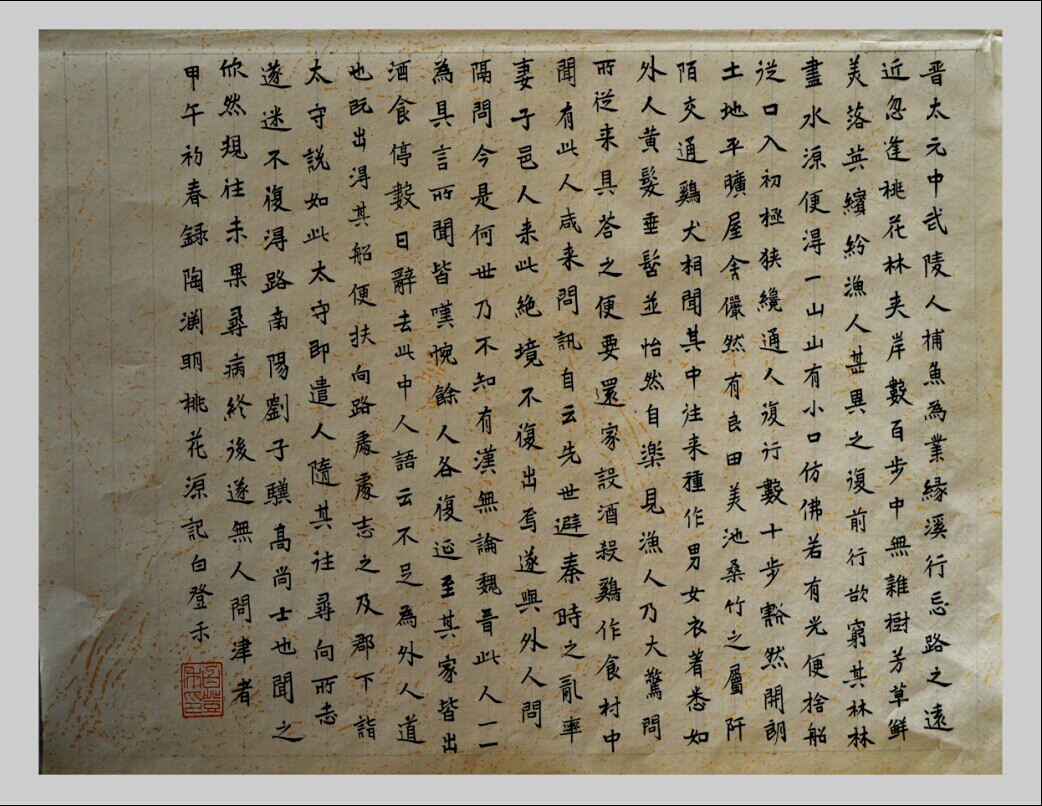 晋太元中武陵人捕魚為業緣溪行忘路之遠
近忽逢桃花林夹岸數百步中無雜樹芳草鮮
美落英繽紛漁人甚異之復前行欲窮其林林
盡水源便得一山山有小口仿佛若有光便捨船
從口入初極狭纔通人復行數十步豁然開朗
土地平曠屋舍儼然有良田美池桑竹之屬阡
陌交通鷄犬相聞其中往来種作男女衣着悉如
外人黄髮垂髫並怡然自樂見漁人乃大驚問
所從来具荅之便要還家設酒殺鷄作食村中
聞有此人咸来問訊自云先世避秦時之亂率
妻子邑人来此絶境不復出焉遂與外人間
隔問今是何世乃不知有漢無論魏晋此人一一
為具言所聞皆嘆惋餘人各復延至其家皆出
酒食停數日辭去此中人語云不足為外人道
也既出得其船便扶向路處處志之及郡下詣
太守説如此太守即遣人隨其往尋向所志
遂迷不復得路南陽劉子驥高尚士也聞之
欣然規往未果尋病終後遂無人問津者
甲午初春録陶淵明桃花源記白登禾